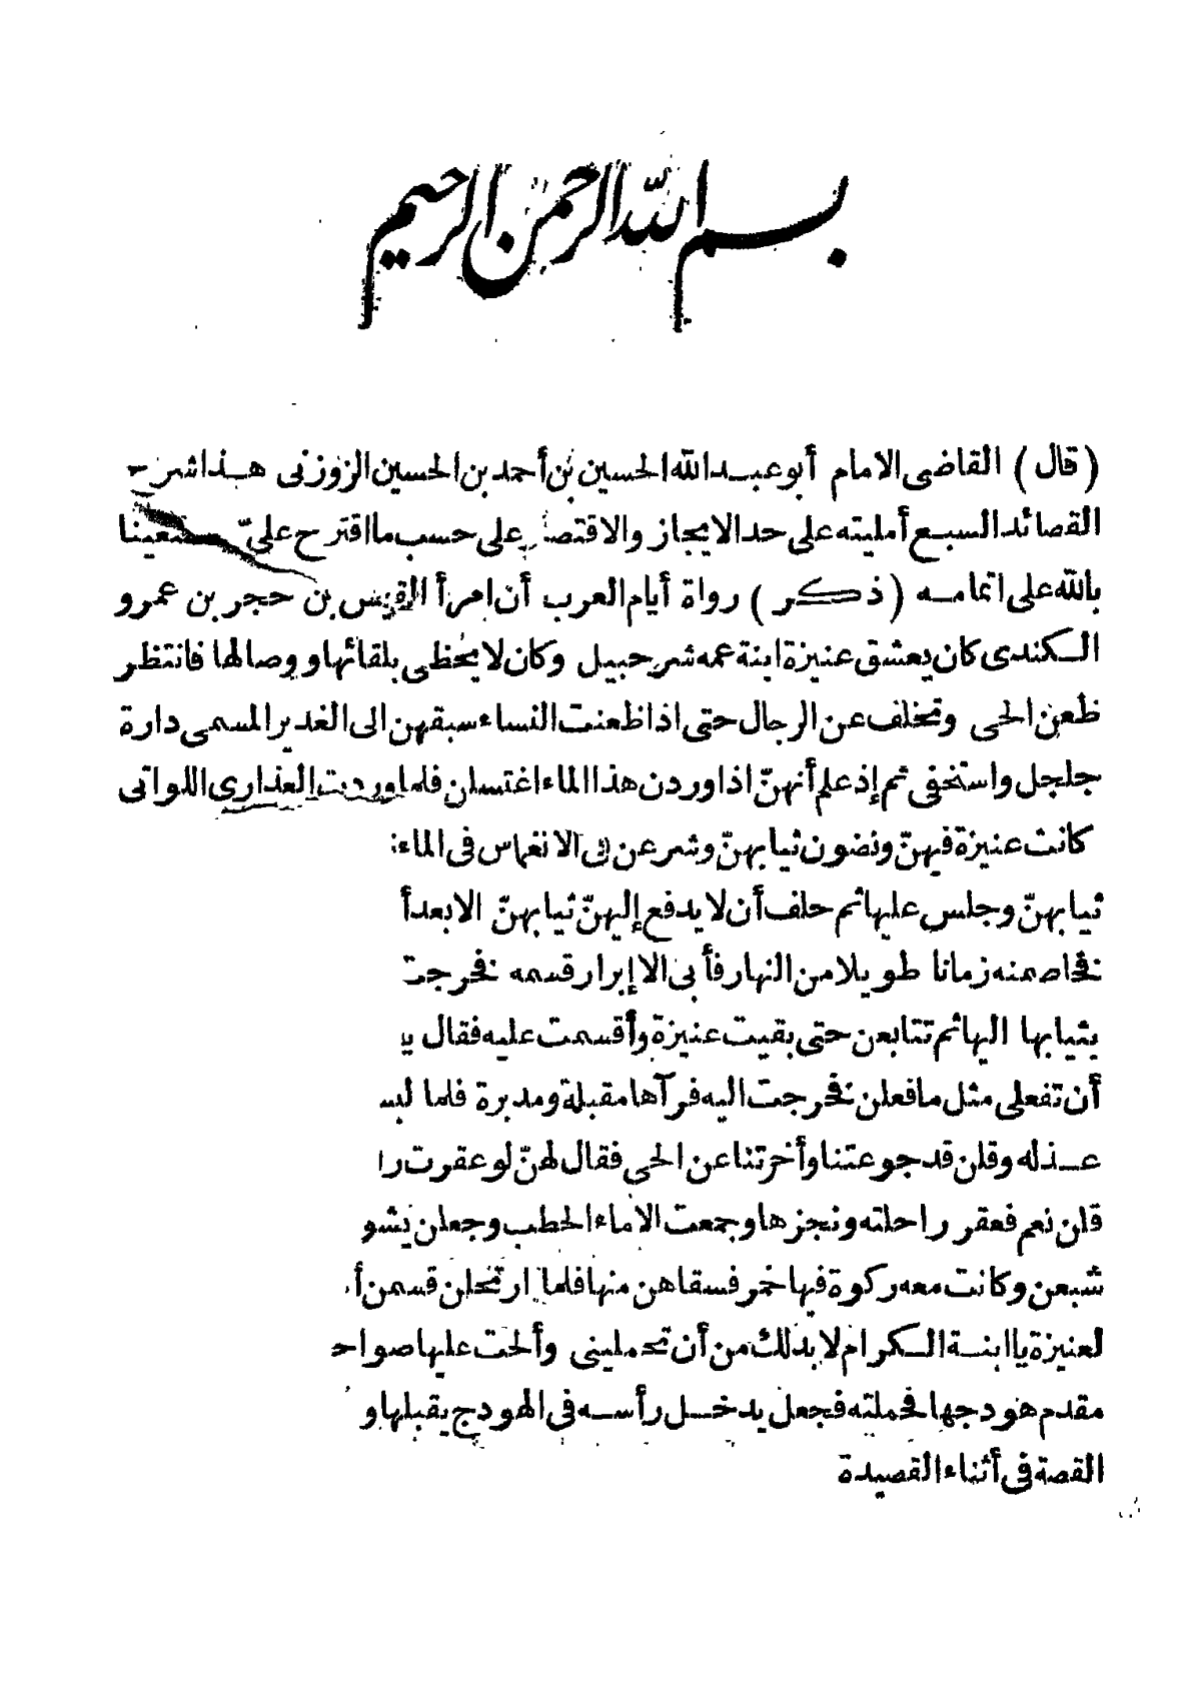 بسم الله الرحمن الرحيم
(قال) القاضى الامام أبو عبد الله الحسين بن أحمد بن الحسين الزوزنى هذا شرح
القصائد السبع أمليته على حد الايجاز والاقتصار على حسب ما اقترح علىّ مستعينا
بالله على اتمامه (ذكر) رواة أيام العرب أن امرأ القيس بن حجر بن عمرو
الكندى كان يعشق عنيزة ابنة عمه شرحبيل وكان لا يحظى بلقائها ووصالها فانتظر
ظعن الحى وتخلف عن الرجال حتى اذا ظعنت النساء سبقهن الى الغدير المسمى دارة
جلجل واستخفى ثم إذ علم أنهنّ اذا وردن هذا الماء اغتسلن فلما وردت العذارى اللواتى
كانت عنيزة فيهنّ ونضون ثيابهنّ وشرعن فى الانغماس فى الماء
ثيابهنّ وجلس عليها ثم حلف أن لا يدفع إليهنّ ثيابهنّ الا بعد أ
فخاصمنه زمانا طويلا من النهار فأبى الا إبرار قسمه فخرجت
بثيابها اليها ثم تتابعن حتى بقيت عنيزة وأقسمت عليه فقال يا
أن تفعلى مثل ما فعلن فخرجت اليه فرآها مقبلة ومدبرة فلما لبس
عذله وقلن قد جوعتنا وأخرتنا عن الحى فقال لهنّ لو عقرت را
قلن نعم فعقر راحلته ونجزها وجمعت الاماء الحطب وجعلن يشو
شبعن وكانت معه ركوة فيها خمر فسقاهن منها فلما ارتحلن قسمن أ
لعنيزة يا ابنة الكرام لا بد لك من أن تحملينى وألحت عليها صواح
مقدم هودجها فحملته فجعل يدخل رأسه فى الهودج يقبلها و
القصة فى أثناء القصيدة